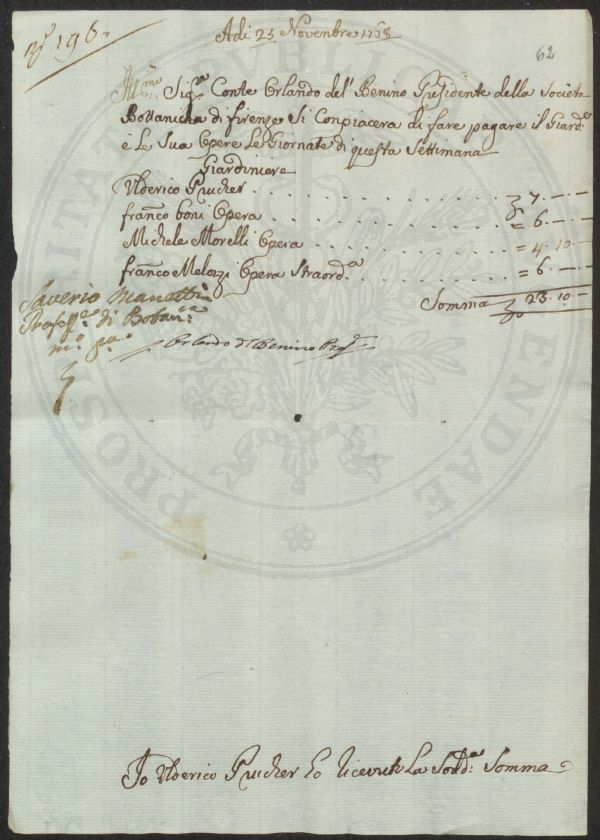 N° 196.
Adi 23 Novembre 1768
62
Ill:mo Sig:e Conte Orlando del' Benino Presidente della Societa
Bottanicha di firenze Si Conpiacera di fare pagare il Giard:e
e Le Sua Opere Le Giornate di questa Settimana
Giardiniere
Ulderico Prucher . . . . . . . . . . 7. — . —
franco boni Opera . . . . . . . . . = 6. — . —
Michele Morelli Opera . . . . . . . . = 4. 10 . —
franco Melozzi Opera Straord:a . . . . . . = 6. — . —
Somma 23. 10. —
Saverio Manetti
Profess:e di Botan:ca
m:o p:a
Orlando del Benino Pres:e
Io Ulderico Prucher Ho Ricevuto La Sodd:a Somma
PUBLICAE
PROSPERITATI